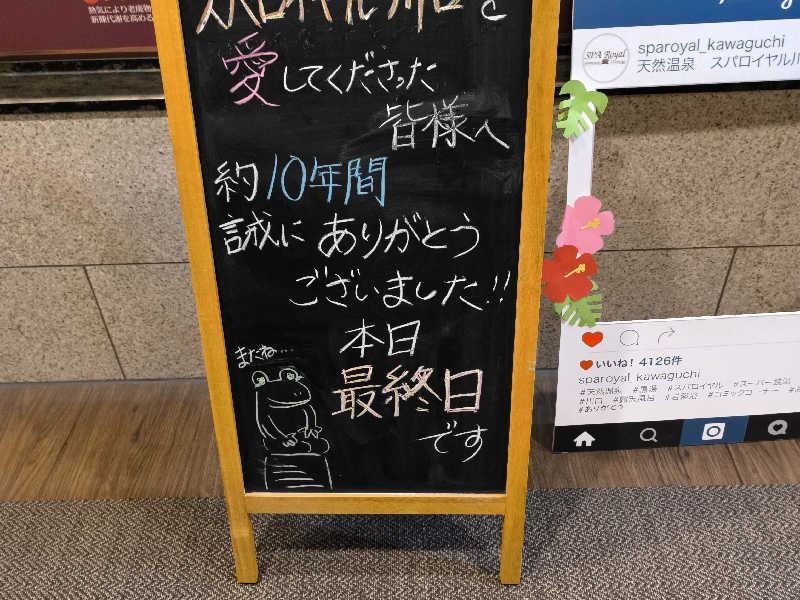 熱気により老廃物
新陳代謝を高める
スパロイヤル川口を
愛してくださった
皆様へ
約10年間
誠にありがとう
ございました!!
本日
最終日
です
またね…
SPA Royal
sparoyal_kawaguchi
天然温泉 スパロイヤル川
いいね! 4126件
sparoyal_kawaguchi
#天然温泉 #黒湯 #スパロイヤル #スーパー銭湯
#川口 #露天風呂 #岩盤浴 #コミックコーナー
#ありがとう